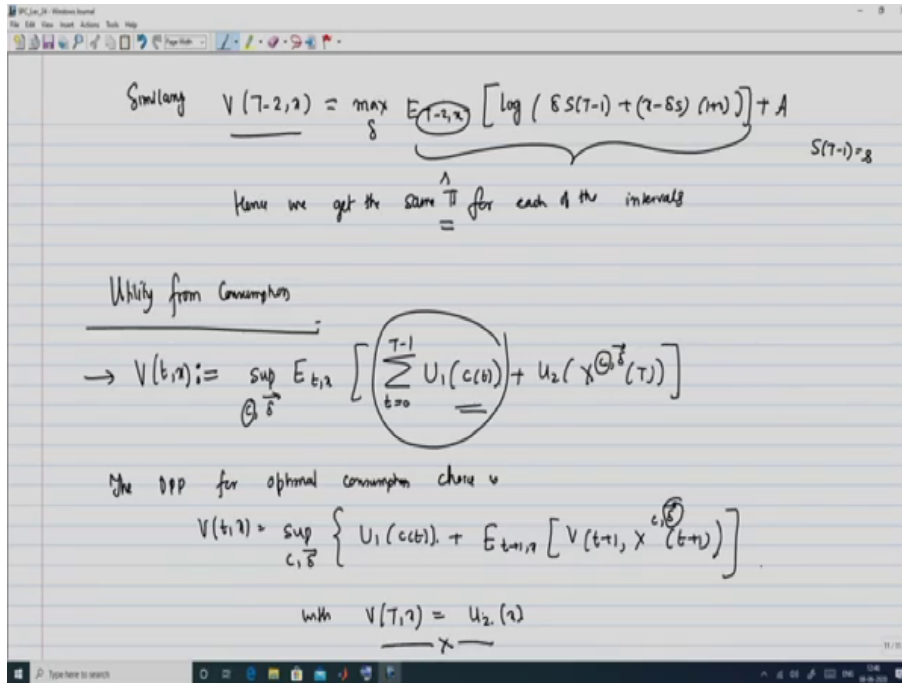 SPC_Lec_34 - Windows Journal
File Edit View Insert Actions Tools Help
Page Width
Similarly V(T-2,x) = max_δ E_{T-2,x} [log(δ S(T-1) + (x-δs)(1+r))] + A
S(T-1)=s
Hence we get the same π̂ for each of the intervals
Utility from Consumption:
→ V(t,x) := sup_{c,δ⃗} E_{t,x} [ Σ_{t=0}^{T-1} U₁(c(t)) + U₂(X^{c,δ⃗}(T)) ]
The DPP for optimal consumption choice is
V(t,x) = sup_{c,δ⃗} { U₁(c(t)) + E_{t+1,x} [V(t+1, X^{c,δ⃗}(t+1))] }
with V(T,x) = U₂(x)
x
11/11
Type here to search
ENG
12:46
08-06-2020